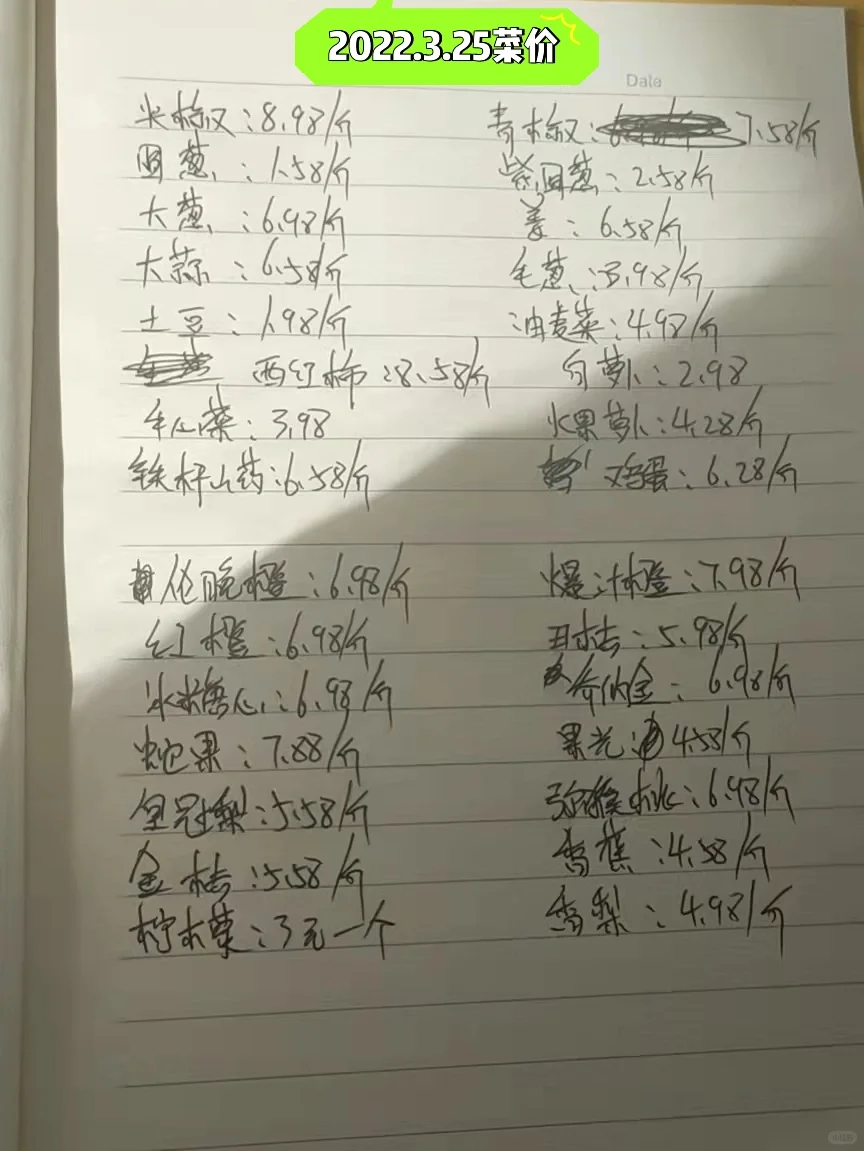 2022.3.25菜价
Date
尖椒:8.98/斤 青椒:7.58/斤
圆葱:1.58/斤 紫圆葱:2.58/斤
大葱:6.98/斤 姜:6.58/斤
大蒜:6.58/斤 毛葱:3.98/斤
土豆:1.98/斤 油麦菜:4.98/斤
西红柿:8.58/斤 白萝卜:2.98
菜:3.98 水果萝卜:4.28/斤
铁杆山药:6.58/斤 鸡蛋:6.28/斤
伦晚橙:6.98/斤 爆汁橙:7.98/斤
红橙:6.98/斤 桔:5.98/斤
冰糖心:6.98/斤 金:6.98/斤
蛇果:7.88/斤 果光:4.58/斤
皇冠梨:5.58/斤 弥猴桃:6.98/斤
金桔:5.58/斤 香蕉:4.58/斤
柠木菜:3元一个 香梨:4.98/斤